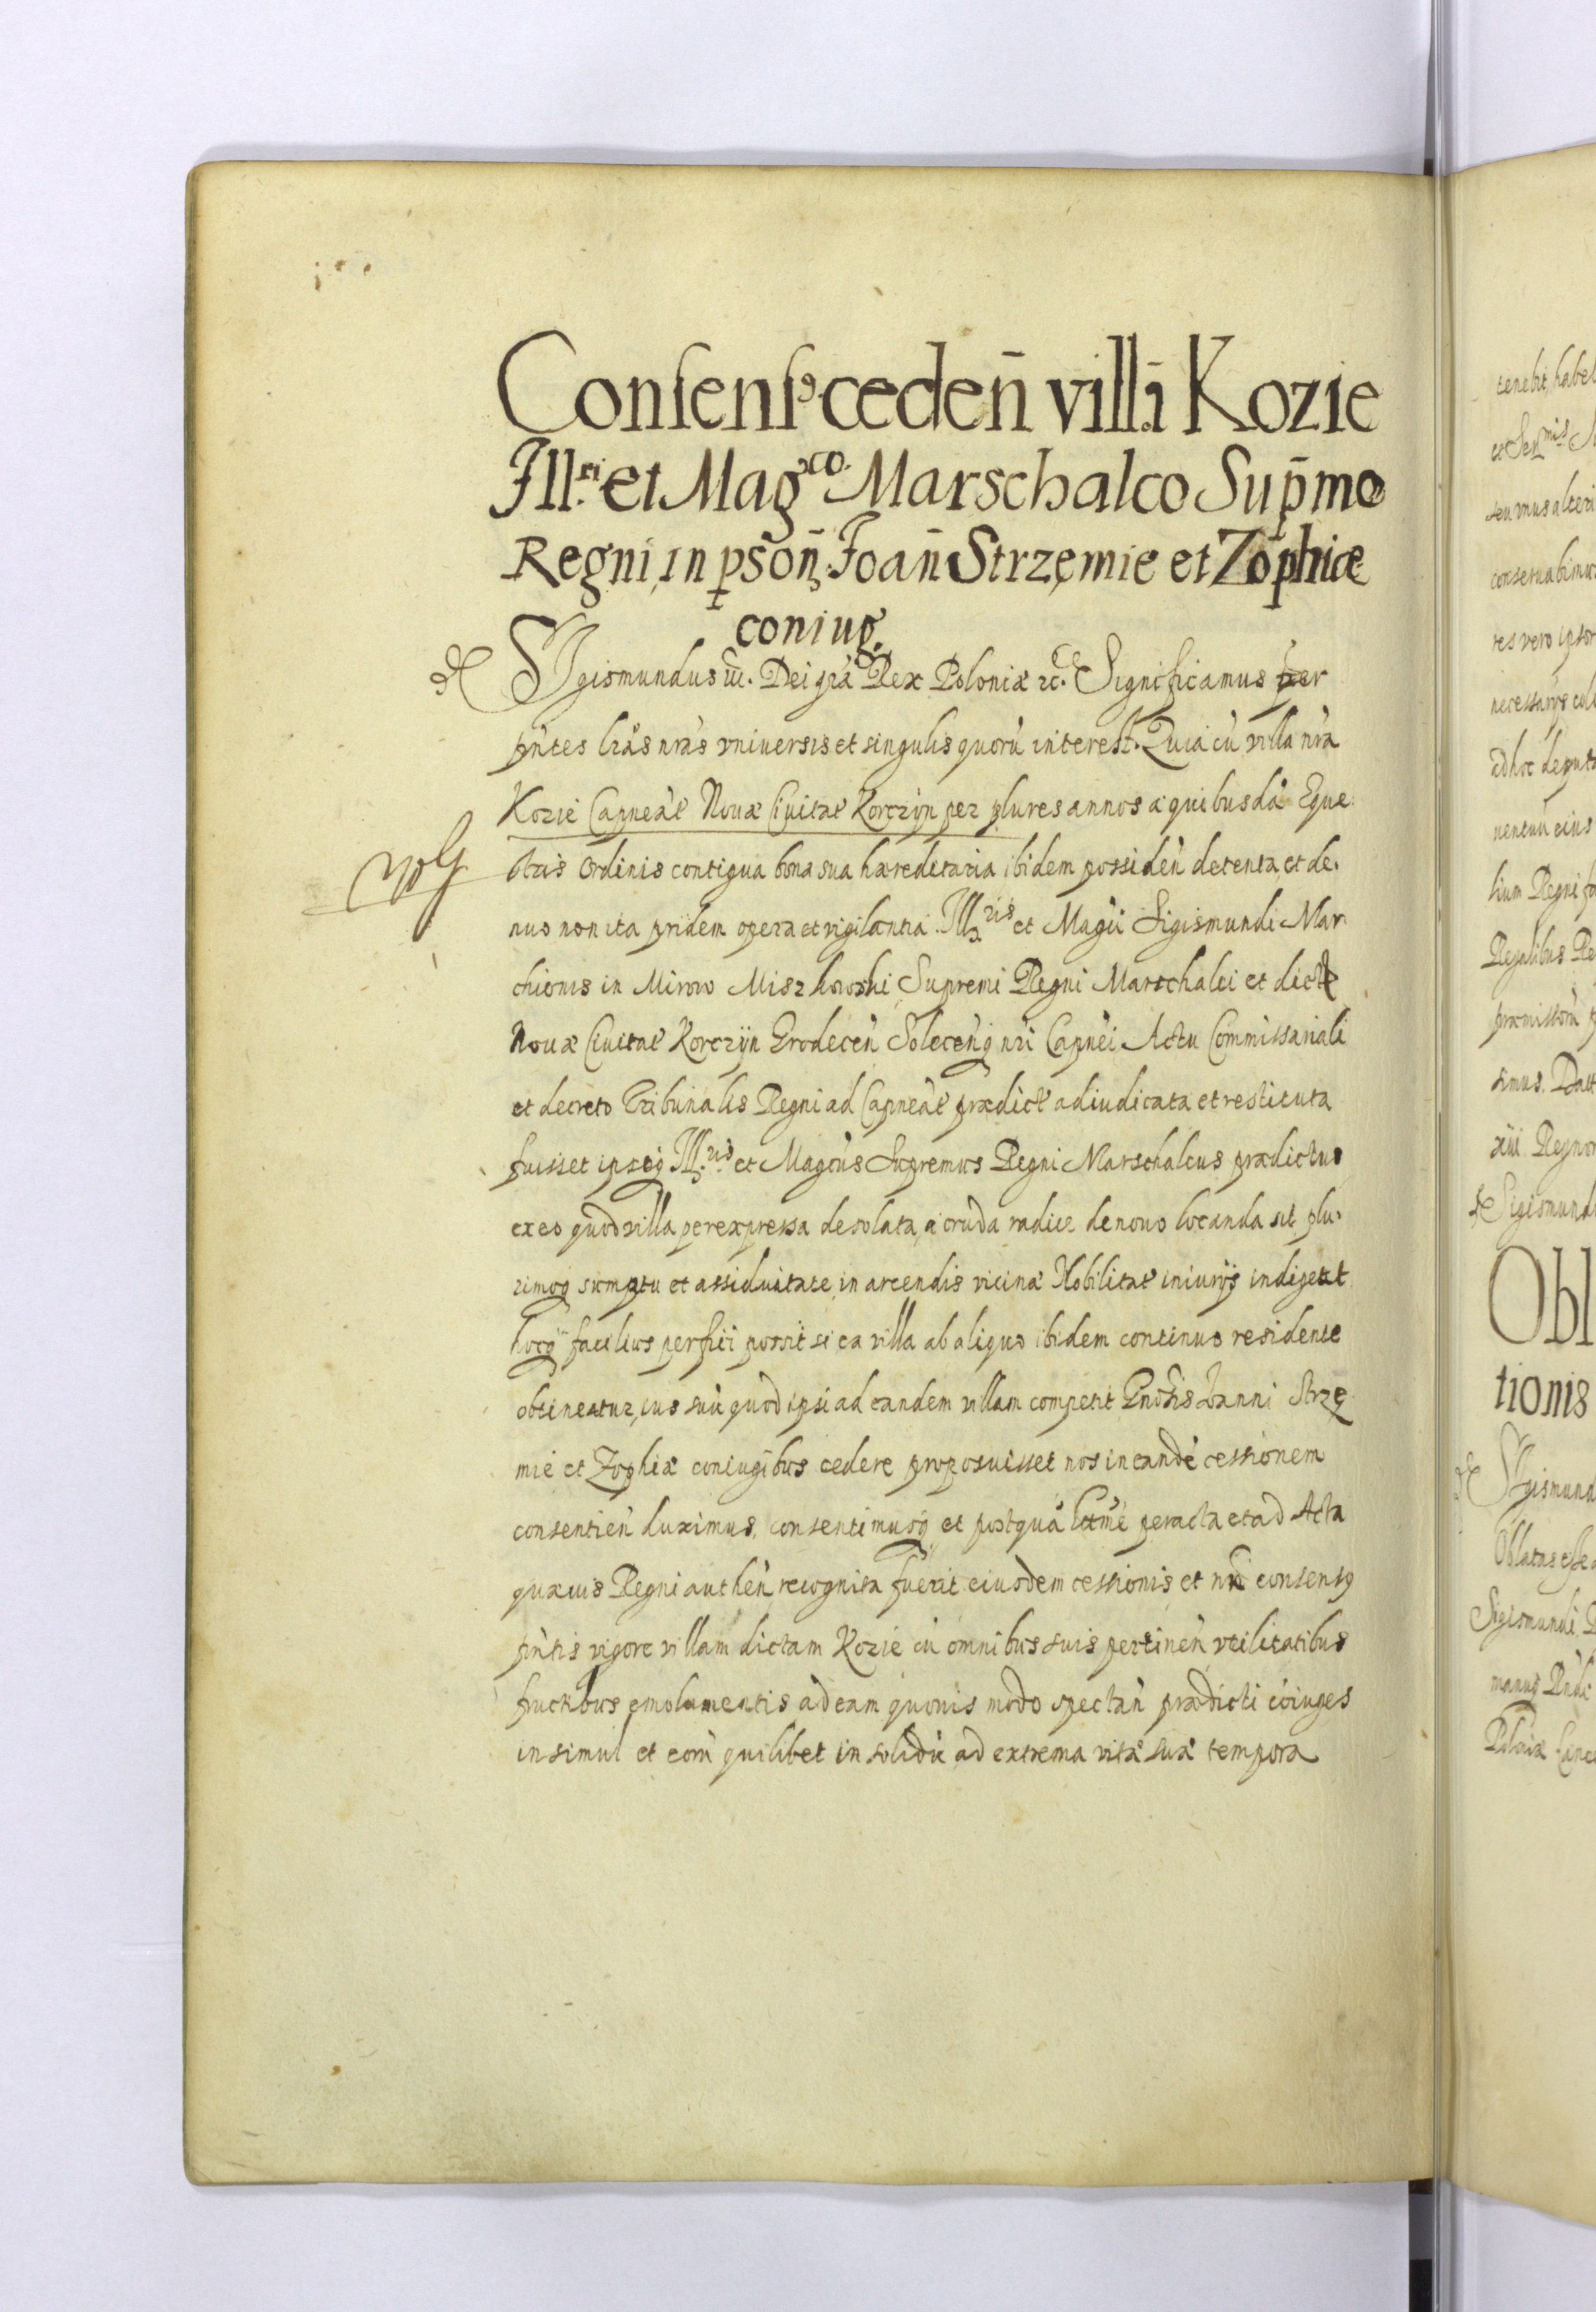 Consensꝰ ceden̄ villā Kozie
Ill.ri et Mag.co Marschalco Sup̄mo
Regni, in ꝑsōn Joan̄ Strzęmie et Zophiæ
coniug.
Sigismundus III. Dei gr̃a Rex Poloniæ etc. Significamus per
pn̄tes lr̃as nr̃as vniuersis et singulis quorū interest. Quia cū villa nr̃a
Kozie Capneat Nouæ Ciuitat Korczÿn per plures annos a quibusdā Eque
stris Ordinis contigua bona sua hæreditaria ibidem possiden̄ detenta et de.
nuo non ita pridem opera et vigilantia Ill.ris et Mag̃ci Sigismundi Mar
chionis in Mirow Miszkowski Supremi Regni Marschalci et dictæ
Nouæ Ciuitat Korczÿn Grodecen̄ Solecen̄q nr̃i Capnei Actu Commissariali
et decreto Tribunalis Regni ad Capneat prædict adiudicata et restituta
fuisset ipseq Ill.ris et Mag̃cus Supremus Regni Marschalcus prædictus
ex eo quod villa per expressa desolata, a cruda radice denouo locanda sit plu.
rimoq sumptu et assiduitate in arcendis vicinæ Nobilitat iniurÿs indigeat
hocq facilius perfici possit si ea villa ab aliquo ibidem continuo residente
obtineatur, ius suū quod ipsi ad eandem villam competit Gnosis Ioanni Strzę
mie et Zophiæ coniugibus cedere proposuisset nos in eandē cessionem
consentien̄ duximus, consentimusq et postquā l̃tme peracta et ad Acta
quæuis Regni authen̄ recognita fuerit eiusdem cessionis et nr̃i consensꝰ
pn̄tis vigore villam dictam Kozie cū omnibus suis pertinen̄ vtilitatibus
fructibus emolumentis ad eam quouis modo spectan̄ prædicti cōiuges
insimul et eorū quilibet in solidū ad extrema vitæ suæ tempora
tenebit, habe
seu vnus alteri
conseruabimus
necessarÿs col
ad hoc deputa
uentuū eius
lium Regni
Regalibus Re
præmissorū
simus. Datt
xiii Regnor
Sigismund
Obl
tionis
Sigismund
Oblatas esse
Sigismundi
manuꝫ
Poloniæ